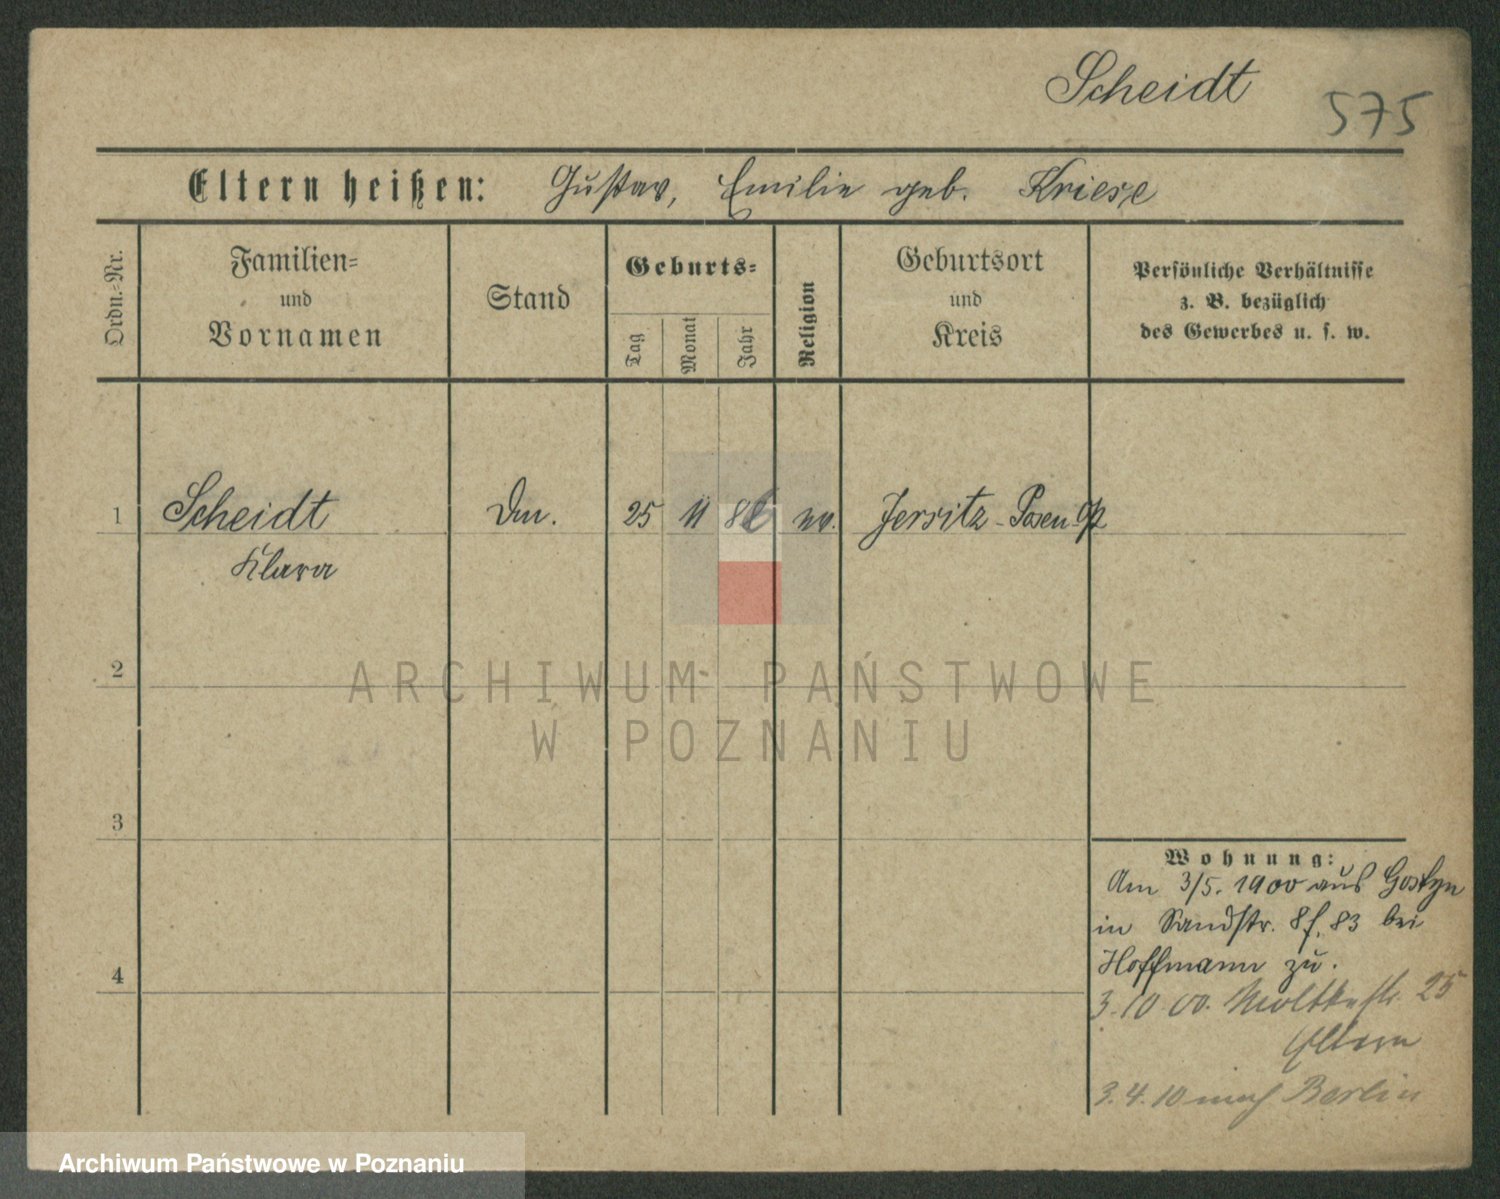 Scheidt
575
Eltern heißen: Gustav, Emilie geb. Kriese
Ordn.-Nr.
Familien-
und
Vornamen
Stand
Geburts-
Tag
Monat
Jahr
Religion
Geburtsort
und
Kreis
Persönliche Verhältnisse
z. B. bezüglich
des Gewerbes u. s. w.
1 Scheidt 25 11 86 ev. Jersitz-Posen
Klara
2
3
4
Wohnung:
Am 3/5. 1900 aus Gostyn
in Sandstr. 8 f. 83 bei
Hoffmann zu.
3.10.00. Moltkestr. 25
Eltern
3.4.10 nach Berlin
ARCHIWUM PAŃSTWOWE
W POZNANIU
Archiwum Państwowe w Poznaniu